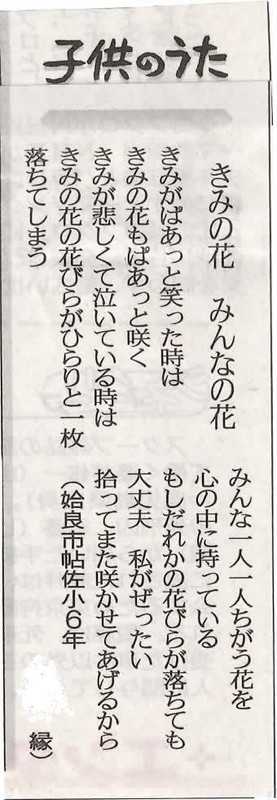 子供のうた
きみの花　みんなの花
きみがぱあっと笑った時は
きみの花もぱあっと咲く
きみが悲しくて泣いている時は
きみの花の花びらがひらりと一枚
落ちてしまう
みんな一人一人ちがう花を
心の中に持っている
もしだれかの花びらが落ちても
大丈夫　私がぜったい
拾ってまた咲かせてあげるから
（姶良市帖佐小６年
縁）